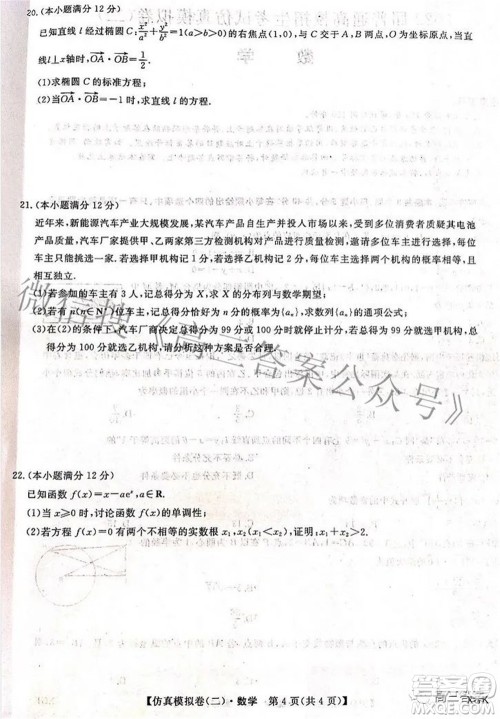 20.(本小题满分12分)
已知直线l经过椭圆C:x²/a²+y²/b²=1(a>b>0)的右焦点(1,0),交C于点A,B,点O为坐标原点,当
l⊥x轴时,OA·OB=
(1)求椭圆C的标准方程;
(2)当OA·OB=-1时,求直线l的方程.
21.(本小题满分12分)
近年来,新能源汽车产业大规模发展,某汽车产品自生产并投入市场以来,受到多位消费者质疑其电池
产品质量,汽车厂家提供甲、乙两家第三方检测机构对产品进行质量检测,邀请多位车主进行选择,每位
车主只能挑选一家.若选择甲机构记1分,若选择乙机构记2分,每位车主选择两个机构的概率相等,且
相互独立.
(1)若参加的车主有3人,记总得分为X,求X的分布列与数学期望;
(2)若有n(n∈N*)位车主,记总得分恰好为n分的概率为,求数列的通项公式;
(3)在(2)的条件下,汽车厂商决定总得分为99分或100分时就停止计分,若总得分为99分就选甲机构,总
得分为100分就选乙机构,请分析这种方案是否合理.
微信搜《高三答案公众号》
22.(本小题满分12分)
已知函数f(x)=x-aeˣ,a∈R.
(1)当x≥0时,讨论函数f(x)的单调性;
(2)若方程f(x)=0有两个不相等的实数根x₁,x₂(x₁<x₂),证明:x₁+x₂>2.
【仿真模拟卷(二)·数学 第4页(共4页)】